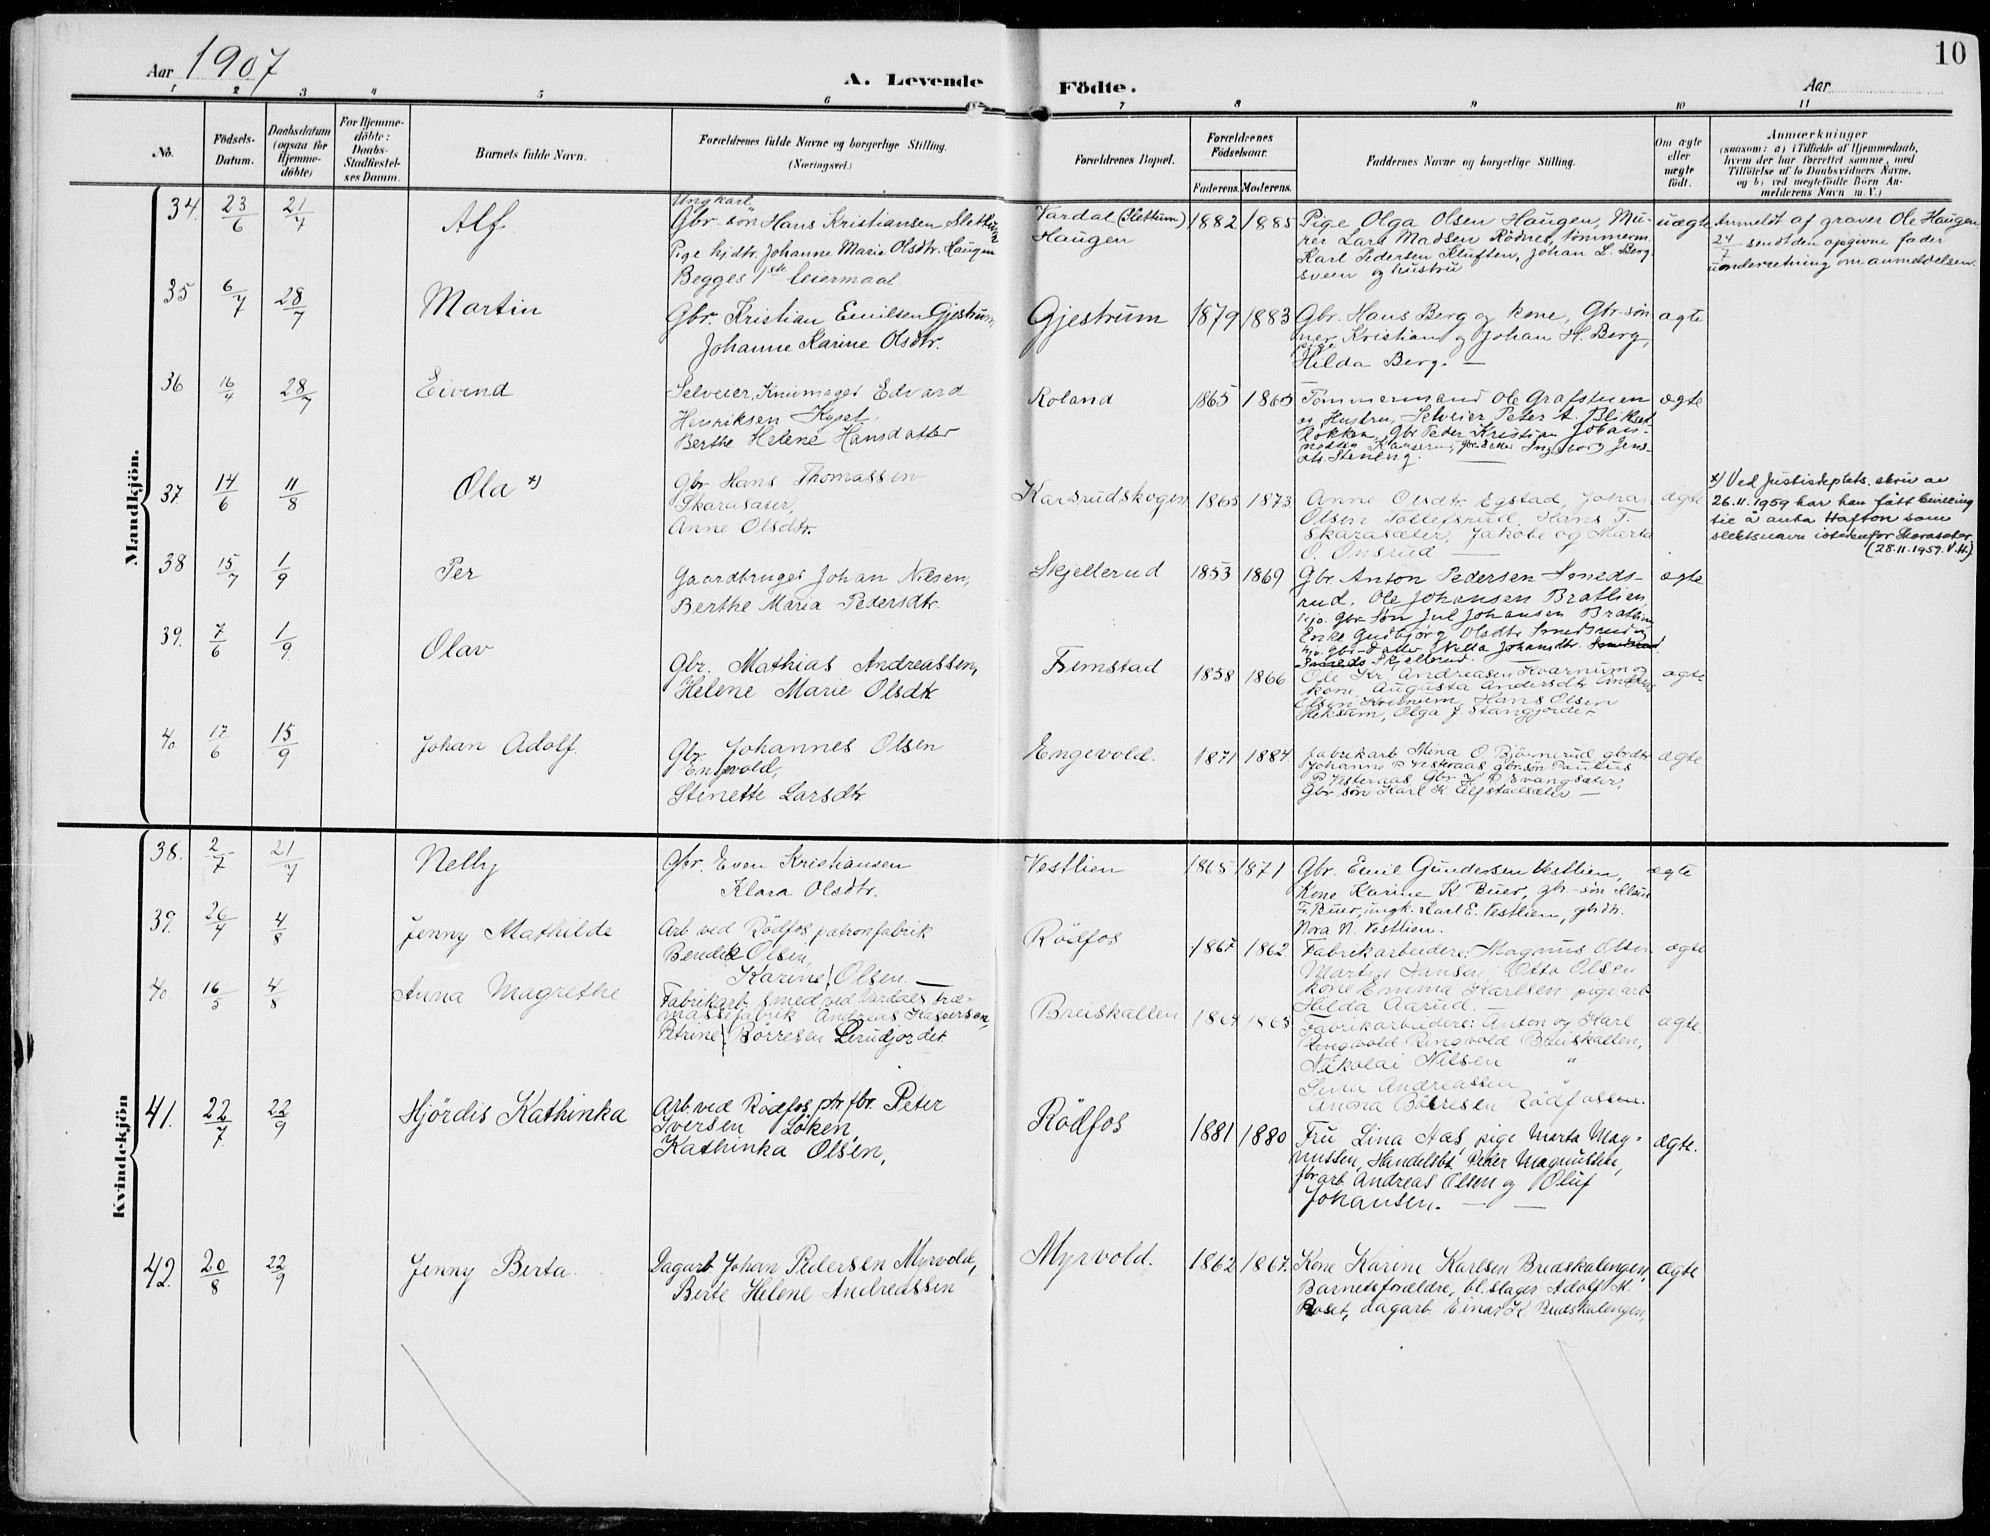 10
Aar 1907
A. Levende Födte.
Aar
1 2 3 4 5 6 7 8 9 10 11
No.
Födsels-Datum.
Daabsdatum (ogsaa for Hjemme-döbte)
For Hjemme-döbte: Daabs-Stadfæstel-ses Datum.
Barnets fulde Navn.
Forældrenes fulde Navne og borgerlige Stilling.
(Næringsvei.)
Forældrenes Bopæl.
Forældrenes Födselsaar.
Faderens. Moderens.
Faddernes Navne og borgerlige Stilling.
Om ægte eller uægte födt.
Anmærkninger
(saasom: a) i Tilfælde af Hjemmedaab,
hvem der har forrettet samme, med
Tilföielse af to Daabsvidners Navne,
og b) ved uegtefödte Börn An-
melderens Navn m. V.)
Mandkjön.
34. 23/6 21/7 Alf
Ungkarl
Gbr. søn Hans Kristiansen Slettum
Pige hjdtr. Johanne Marie Olsdtr. Haugen
Begges 1ste leiermaal.
Vardal (Slettum)
Haugen
1882 1885
Pige Olga Olsen Haugen, Mu-
rer Lars Madsen Rödnes, tömmerm.
Karl Pedersen Kluften, Johan L. Berg-
sveen og hustru
uægte
Anmeldt af graver Ole Haugen
24/7 sendt den opgivne fader
underretning om anmeldelsen.
35 6/7 28/7 Martin
Gbr. Kristian Emilsen Gjestrum
Johanne Karine Olsdtr.
Gjestrum 1879 1883
Gbr. Hans Berg og kone, Gbr-søn
ner Kristian og Johan H. Berg,
pige
Hilda Berg. —
ægte
36 16/4 28/7 Eivind
Selveier, Knivmager Edvard
Henriksen Kyset
Berthe Helene Hansdatter
Roland 1865 1865
Tömmermand Ole Grafstuen
og Hustru, Selveier Peter A. Blikset
Løkken, Gbr Peter Kristian Johan-
Ingeborg Jens-
dtr. Stenberg. —
ægte
37 14/6 11/8 Ola x)
Gbr Hans Thomassen
Skarasæter,
Anne Olsdtr.
Karsrudskogen 1865 1873
Anne Olsdtr Egstad, Joha
Olsen Tollefsrud, Hans T.
Skarasæter, Jakobe og Marta
O. Onsrud —
ægte
x) Ved Justisdeptets. skriv av
26.11.1959 har han fått bevilling
til å anta Hafton som
slektsnavn istedenfor Skarasæter
(28.11.1959. V.H.)
38 15/7 1/9 Per
Gaardbruger Johan Nilsen,
Berthe Maria Pedersdtr.
Skjellerud 1853 1869
Gbr. Anton Pedersen Smeds-
rud. Ole Johansen Bratlien,
Gbr. Søn Jul Johansen Bratlien
Enke Gudbjørg Olsdtr Smedsrud og
Gbr-datter Hilda Johansdtr.
Skjellerud.
ægte
39. 7/6 1/9 Olav
Gbr. Mathias Andreassen,
Helene Marie Olsdtr
Femstad 1858 1866
Ole Kr. Andreasen Kvarnum og
kone, Augusta Andersdtr
Olsen Kvernum, Hans Olsen
Hekstum, Olga J. Stangjordet
ægte
40 17/6 15/9 Johan Adolf.
Gbr. Johannes Olsen
Engevold,
Stinette Larsdtr
Engevold. 1871 1884.
Fabrikarb Mina O Bjørnerud gbrdtr
Johanne P Vesteraas gbr. søn Paulus
P. Vesteraas, Gbr H P Evangsæter,
Gbr søn Karl K Elfstadsæter —
ægte
Kvindekjön
38. 2/7 21/7 Nelly
Gbr. Even Kristiansen
Klara Olsdtr.
Vestlien 1865 1871
Gbr. Emil Gundersen Vestlien,
Kone Karine K Buer, gbr-søn
Fr. Buer, ungk. Karl E. Vestlien, gbrdtr.
Nora N. Vestlien.
ægte
39. 26/4 4/8 Jenny Mathilde
Arb. ved Rödfos patronfabrik
Bendik Olsen,
Karine Olsen.
Rödfos 1867 1862
Fabrikarbeidere: Magnus Olsen
Martin Hansen, Otto Olsen
kone Emma Karlsen pige arb
Hilda Aarud. —
ægte
40 16/5 4/8 Anna Magrethe
Fabrikarb. smed ved Vardals træ-
massefabrik Andreas Kaspersen,
Petrine Börresen Lerudjordet
Breiskallen 1864 1865
Fabrikarbeidere: Anton og Karl
Ringvold Breiskallen,
Nikolai Nilsen "
Lina Andreassen "
Anna Börresen Rödfossen.
ægte
41. 22/7 22/9 Hjördis Kathinka
Arb. ved Rödfos ptr. fbr. Peter
Iversen Löken,
Kathinka Olsen,
Rödfos 1881 1880
Fru Lina Aas, pige Marta Mag-
nussen, Handelsbt. Peter Magnussen,
fbr arb Andreas Olsen og Oluf
Johansen. — —
ægte.
42. 20/8 22/9 Jenny Berta.
Dagarb. Johan Pedersen Myrvold,
Berte Helene Andreassen
Myrvold. 1862 1867.
Kone Karine Karlsen Bredskalengen,
Barnets forældre, bl. slager Adolf M.
Roset, dagarb. Einar K Bredskalengen,
ægte